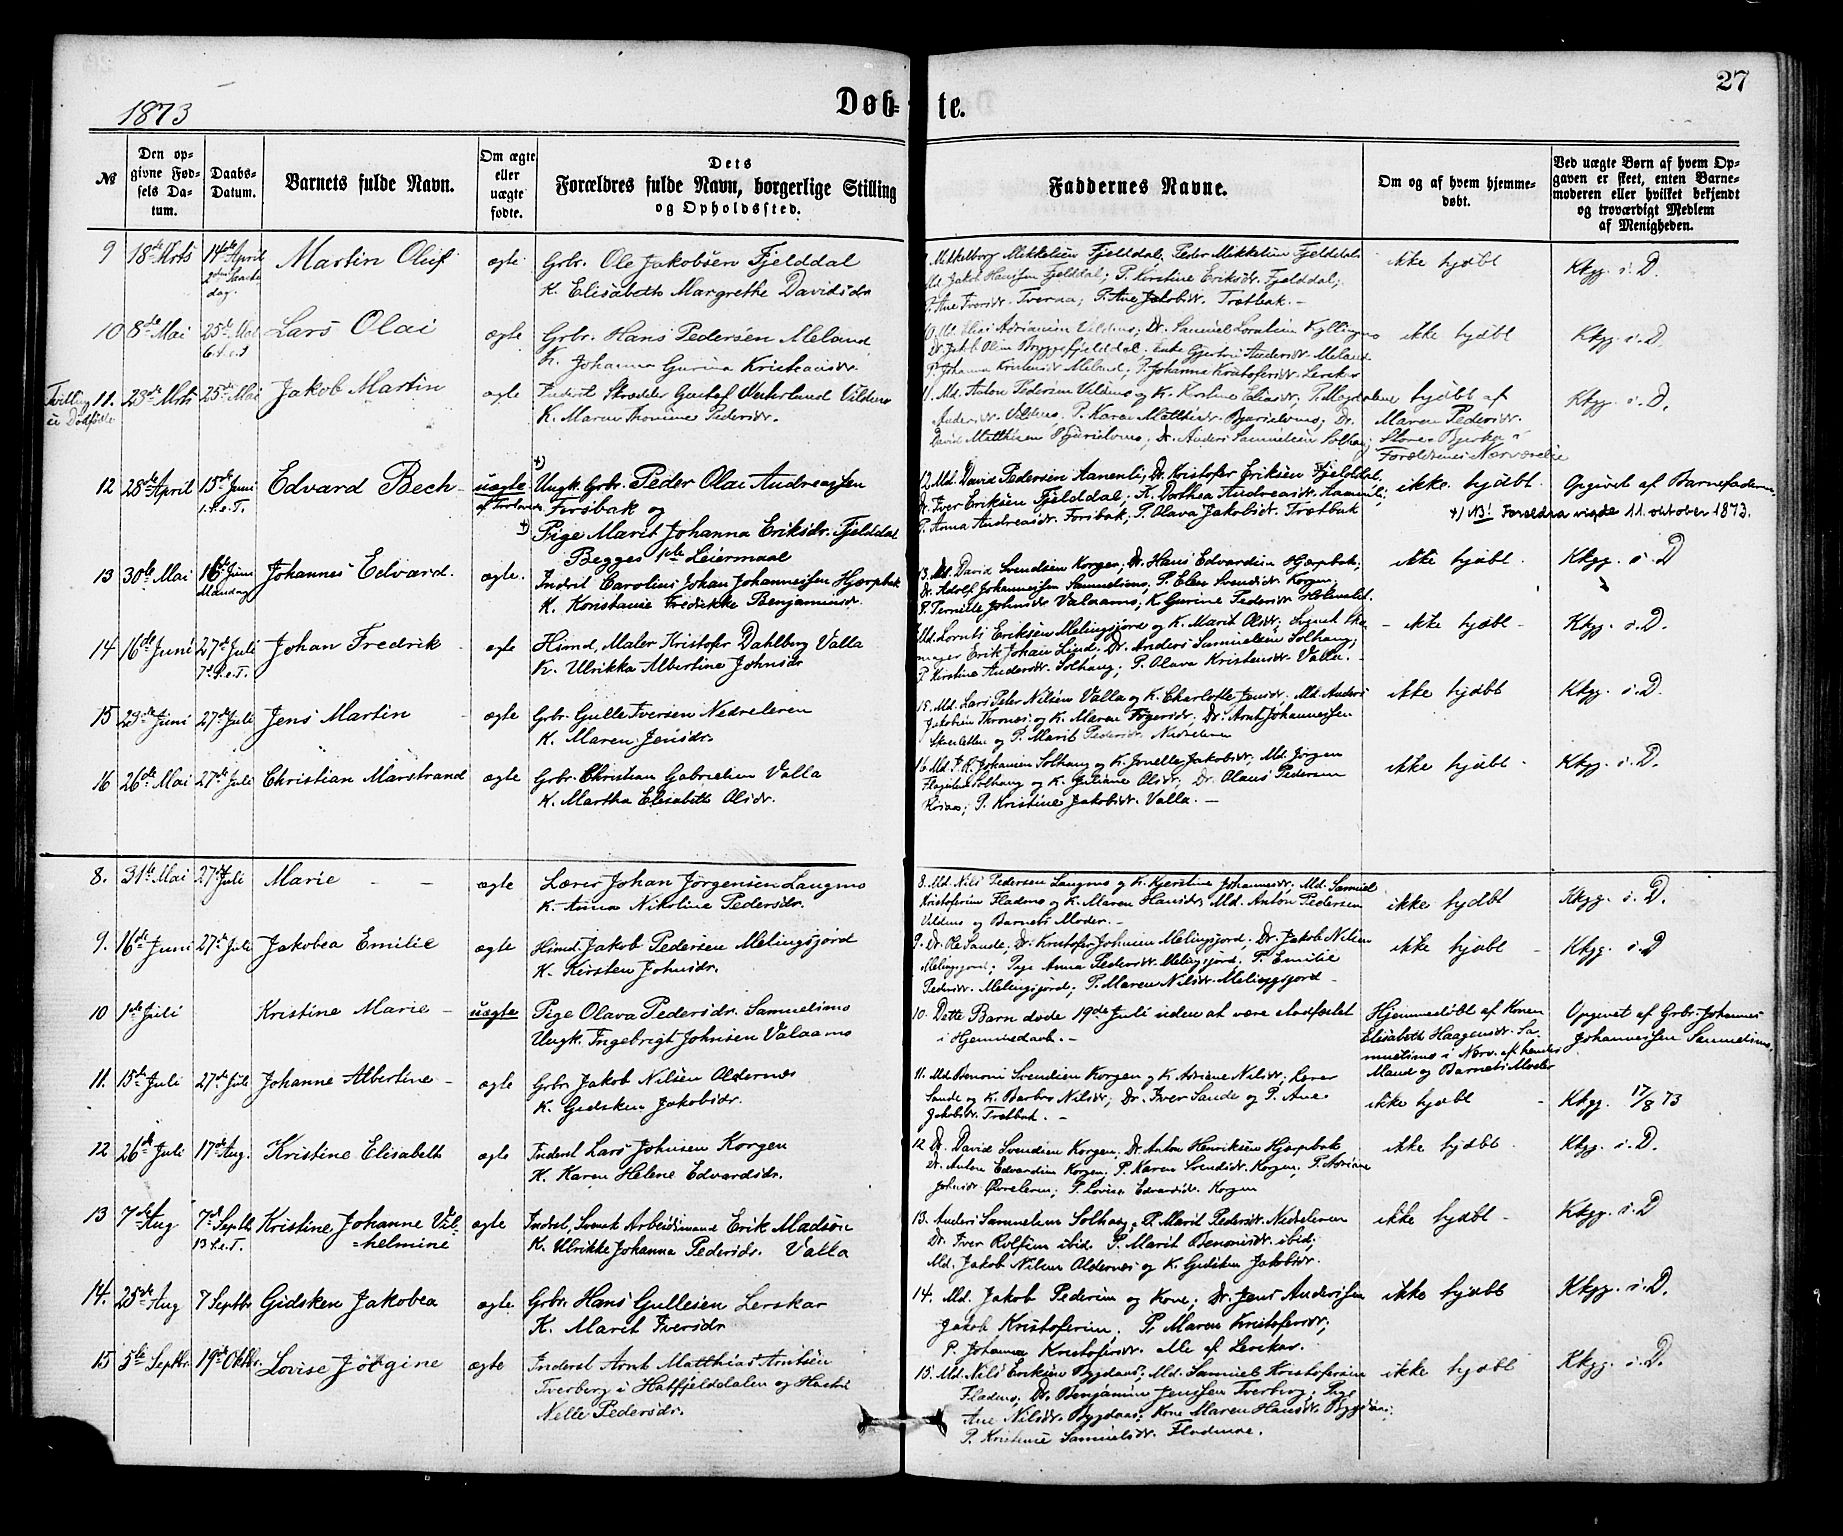 1873
Døb-te.
27
№
Den opgivne Fødsels Datum.
Daabs-Datum.
Barnets fulde Navn.
Om ægte eller uægte født.
Dets Forældres fulde Navn, borgerlige Stilling og Opholdssted.
Faddernes Navne.
Om og af hvem hjemmedøbt.
Ved uægte Børn af hvem Opgaven er skeet, enten Barnemoderen eller hvilket bekjendt og troværdigt Medlem af Menigheden.
9 18de Mrts 14de April
2den Paaske
dag.
Martin Oluf
ægte
Grbr. Ole Jakobsen Fjelddal
K. Elisabeth Margrethe Davidsdr
Mikkelborg Mikkelsen Fjelddal, Peder Mikkelsen Fjelddal
Md Jakob Hansen Fjelddal; P. Kirstine Eriksdr. Fjelddal;
P. Ane Iversdr. Tverna; P. Ane Jakobsdr. Trætbak. -
ikke hjdøbt
Kkgg. i. D.
10 8de Mai 25de Mai
6.S.e.P.
Lars Olai
ægte
Grbr. Hans Pedersen Meland
K. Johanna Gurina Kristiansdr
Adriansen Vildmo; Dr. Samuel Kyllingmo
Dr. Jakob Olsen Bryggefjelddal; Enke Andersdr. Meland
P. Johanna Kristensdr Meland; P. Johanna Kristofersdr. Lerskar
ikke hjdøbt
Kkgg. i. D.
Tvilling 11. 23de Mrts 25de Mai
u Dødfødte
Jakob Martin
ægte
Inderst Skrædder Gustaf Vesterlund Vildmo
K. Maren Thomine Pedersdr.
11. Md. Anton Pedersen Vildmo og K. Kirstine Eliasdr, P. Magdalene
Andersdr. Vildmo. P. Karen Matthisdr. Dr.
David Matthisen Dr. Anders Samuelsen Solhaug
hjdøbt af
Maren Pedersdr.
Stone Bjerka i
Forældrenes Nærværelse
Kkgg. i. D.
12 28de April 15de Juni
1.S.e.T.
Edvard Bech -
uægte
af Trolovede
+)
Ungk. Grbr. Peder Olai Andreassen
Forsbak og
+) Pige Marit Johanna Eriksdr. Fjelddal
Begges 1ste Leiermaal
12. Md. David Pedersen Aanenli, Dr. Kristofer Eriksen Fjelddal,
Dr. Iver Eriksen Fjelddal; K. Dorthea Andreasdr. Aanenli;
P. Anna Andreasdr. Forsbak; P. Olava Jakobsdr. Trætbak
ikke hjdøbt.
Opgivet af Barnefaderen
+) NB! Forældra viede 11. oktober 1873.
13 30te Mai 16de Juni
Mandag
Johannes Edvard.
ægte.
Inderst Carolius Johan Johannessen Hjærpbak
K. Konstanse Fredrikke Benjaminsdr.
13. Md. David Svendsen Korgen; Dr. Hans Edvardsen Hjærpbak;
Dr. Adolf Johannessen Samuelsmo, P. Elen Svendsdr. Korgen;
P. Pernille Johnsdr Valaamo; K. Gurine Pedersdr Holmslet.
ikke hjdøbt.
Kkgg. i D
14 16de Juni 27de Juli
7.S.e.T.
Johan Fredrik -
ægte
Hsmd, Maler Kristofer Dahlberg Valla
K. Ulrikka Albertine Johnsdr
Md. Lornts Eriksen Melingsjord og K. Marit Olsdr; Svensk Sko
mager Erik Johan Lind; Dr. Anders Samuelsen Solhaug;
P. Kirstine Andersdr. Solhaug; P. Olava Kristensdr. Valla. -
- ikke hjdøbt -
Kkgg. i. D.
15 29de Juni 27de Juli
Jens Martin
ægte
Grbr. Gulle Iversen Nedreleren
K. Maren Jensdr.
15. Md. Lars Peter Nilsen Valla og K. Charlotte Jensdr. Md. Anders
Jakobsen Thrones og K. Maren Dr. Arnt Johannessen
og P. Marit Pedersdr. Nedreleren
ikke hjdøbt
Kkgg. i. D.
16 26de Mai 27de Juli
Christian Marstrand
ægte
Grbr. Christian Gabrielsen Valla
K. Martha Elisabeth Olsdr.
16 Md. Johansen Solhaug og K. Jakobsdr. Md. Jørgen
Solhaug og K. Juliane Olsdr; Dr. Olaus Pedersen
P. Kristine Jakobsdr. Valla. -
ikke hjdøbt -
Kkgg. i. D.
8. 31te Mai 27de Juli
Marie - -
ægte
Lærer Johan Jørgensen Langmo
K. Anna Nikoline Pedersdr.
8. Md. Nils Pedersen Langmo og K. Kjerstine Johannesdr; Md. Samuel
Kristofersen Fladmo og K. Maren Hansdr. Md. Anton Pedersen
Vildmo og Barnets Moder. -
ikke hjdøbt
Kkgg. i. D.
9. 16de Juni 27de Juli
Jakobea Emilie
ægte
Hsmd. Jakob Pedersen Melingsjord
K. Kirsten Johnsdr.
9. Dr. Ole Sande; Dr. Kristofer Johnsen Melingsjord. Dr. Jakob Nilsen
Melingsjord; Pige Anna Pedersdr. Melingsjord; P. Emilie
Pedersdr. Melingsjord; P. Maren Nilsdr. Melingsjord
ikke hjdøbt -
Kkgg. i. D
10 1ste Juli
Kristine Marie -
uægte
Pige Olava Pedersdr. Samuelsmo
Ungk. Ingebrigt Johnsen Valaamo
10. Dette Barn døde 19de Juli uden at være stadfæstet
i Hjemmedaab. -
Hjemmedøbt af Konen
Elisabeth Haagensdr. Sa
muelsmo i Nærv. af hendes
Mand og Barnets Moder
Opgivet af Grbr. Johannes
Johannessen Samuelsmo.
11. 15de Juli 27de Juli
Johanne Albertine -
ægte
Grbr. Jakob Nilsen Oldernæs
K. Gidsken Jakobsdr.
11. Md Benoni Svendsen Korgen og K. Adriane Nilsdr; Lærer
Sande og K. Barbro Nilsdr; Dr. Iver Sande og P. Ane
Jakobsdr. Trætbak. -
ikke hjdøbt -
Kkgg. 17/8 73
12 26de Juli 17de Aug.
Kristine Elisabeth
ægte
Inderst Lars Johnsen Korgen
K. Karen Helene Edvardsdr.
12 Dr. David Svendsen Korgen, Dr. Anton Henriksen Hjærpbak
Dr. Anton Edvardsen Korgen, P. Karen Svendsdr. Korgen; P. Adriane
Johnsdr. Øvreleren; P. Lovise Edvardsdr. Korgen
ikke hjdøbt
Kkgg. i. D.
13 7de Aug 7de Septbr
13 S.e.T.
Kristine Johanne Vil-
=helmine
ægte
Inderst, Svensk Arbeidsmand Erik Madsen
K. Ulrikke Johanna Pedersdr. Valla
13. Anders Samuelsen Solhaug, P. Marit Pedersdr. Nedreleren
Dr. Iver Rolfsen ibid. P. Marit Benonisdr. ibid;
Md. Jakob Nilsen Oldernæs og K. Gidsken Jakobsdr.
ikke hjdøbt -
Kkgg. i. D
14. 25de Aug 7 Septbr.
Gidsken Jakobea
ægte.
Grbr. Hans Gullesen Lerskar
K. Marit Iversdr
14. Md. Jakob Pedersen og Kone; Dr. Jens Anderssen
Jakob Kristofersen. P. Maren Kristofersdr;
P. Johanna Kristofersdr. alle af Lerskar.
ikke hjdøbt
Kkgg. i. D.
15 5te Septbr. 19de Oktbr.
Lovise Jørgine
ægte
Inderst Arnt Matthias Arntsen
Tverberg i Hatfjelddalen og Hustru
Nelle Pedersdr.
15. Md. Nils Eriksen Bygdaas; Md. Samuel Kristofersen
Fladmo; Dr. Benjamin Jenssen Tverberg; Pige
Ane Nilsdr. Bygdaas; Kone Maren Hansdr. Bygdaas;
P. Kristense Samuelsdr. Fladmoe.
ikke hjdøbt
Kkgg. i. D.